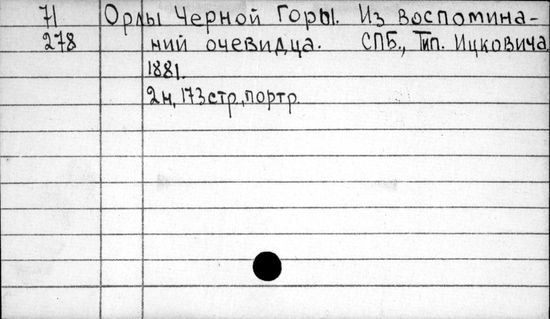 71 Орлы Черной Горы. Из воспомина-
278 ний очевидца. СПБ., Тип. Ицковича,
1881.
2н, 173стр., портр.